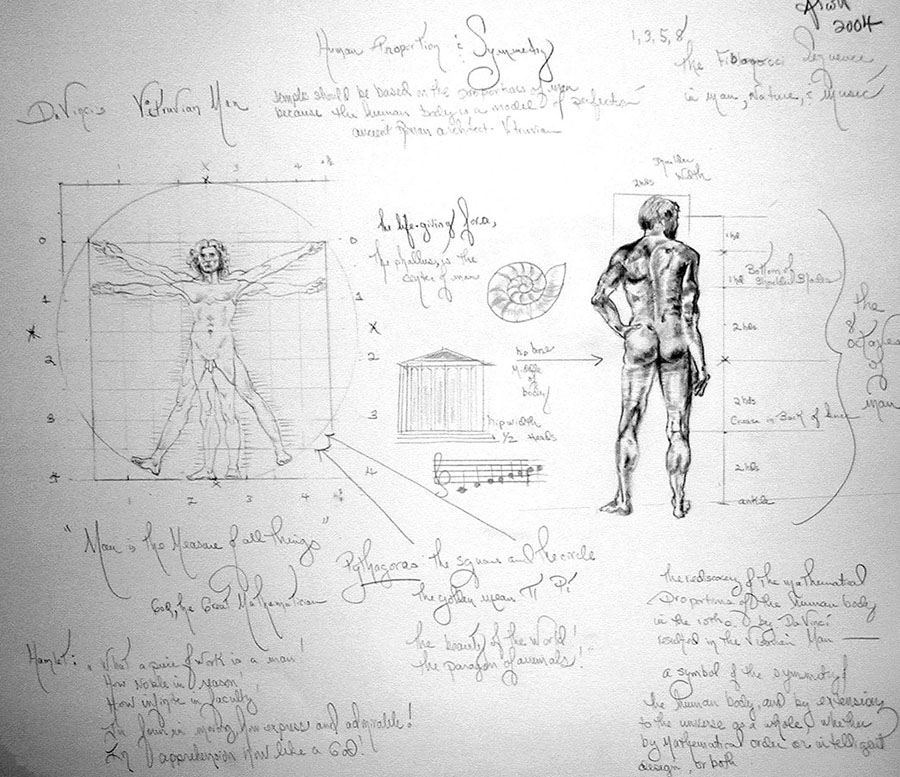 2004
Human Proportion & Symmetry
1, 3, 5, 8,
the Fibonocci Sequence
in man, Nature, & Music
DaVinci's Vitruvian Man
temple should be based on the proportions of man
because the human body is a model of perfection
ancient Roman architect - Vitruvian
shoulder
width
2 hds
the life-giving force,
the phallus, is the
center of man
1 hd
1 hd
Bottom of
Shoulder Blades
2 hds
the
8
octaves
of
man
hip bone
Middle
of
body
hip width
1 1/2 heads
2 hds
Crease in Back of knee
2 hds
ankle
1 3 4
0 0
1 1
2 2
3 3
4 4
1 2 3 4
"Man is the Measure of all things"
Pythagoras the square and the circle
God, the Great Mathematician
the golden mean π Pi
the rediscovery of the mathematical
proportions of the human body
in the 15th c. by DaVinci
resulted in the Vitruvian Man —
a symbol of the symmetry of
the human body, and by extension
to the universe as a whole, whether
by mathematical order or intelligent
design, or both
Hamlet: "What a piece of work is a man!
How noble in reason!
How infinite in faculty!
In form in moving how express and admirable!
In apprehension how like a God!
the beauty of the world!
the paragon of animals!"